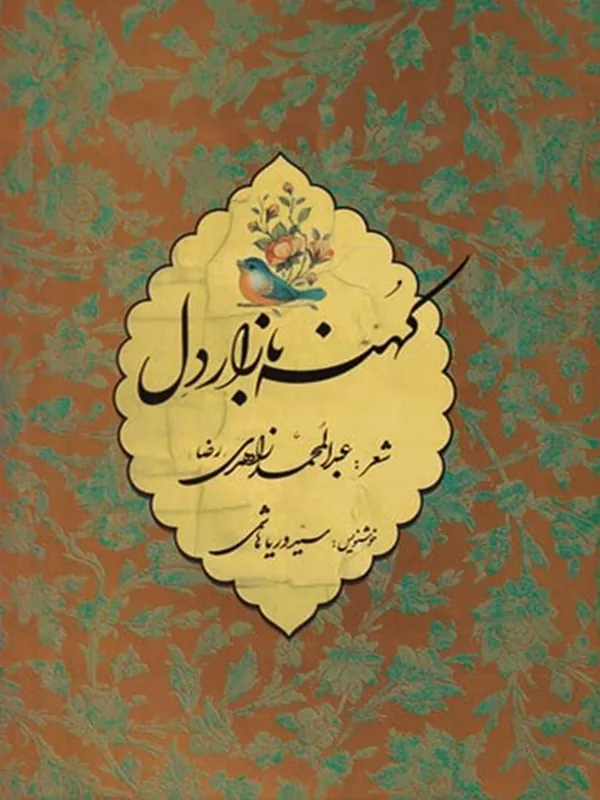 کُهنه بازار دِل
شعر: عبدالمحمّد زاهدی رضا
خوشنویس: سیّد دریا هاشمی